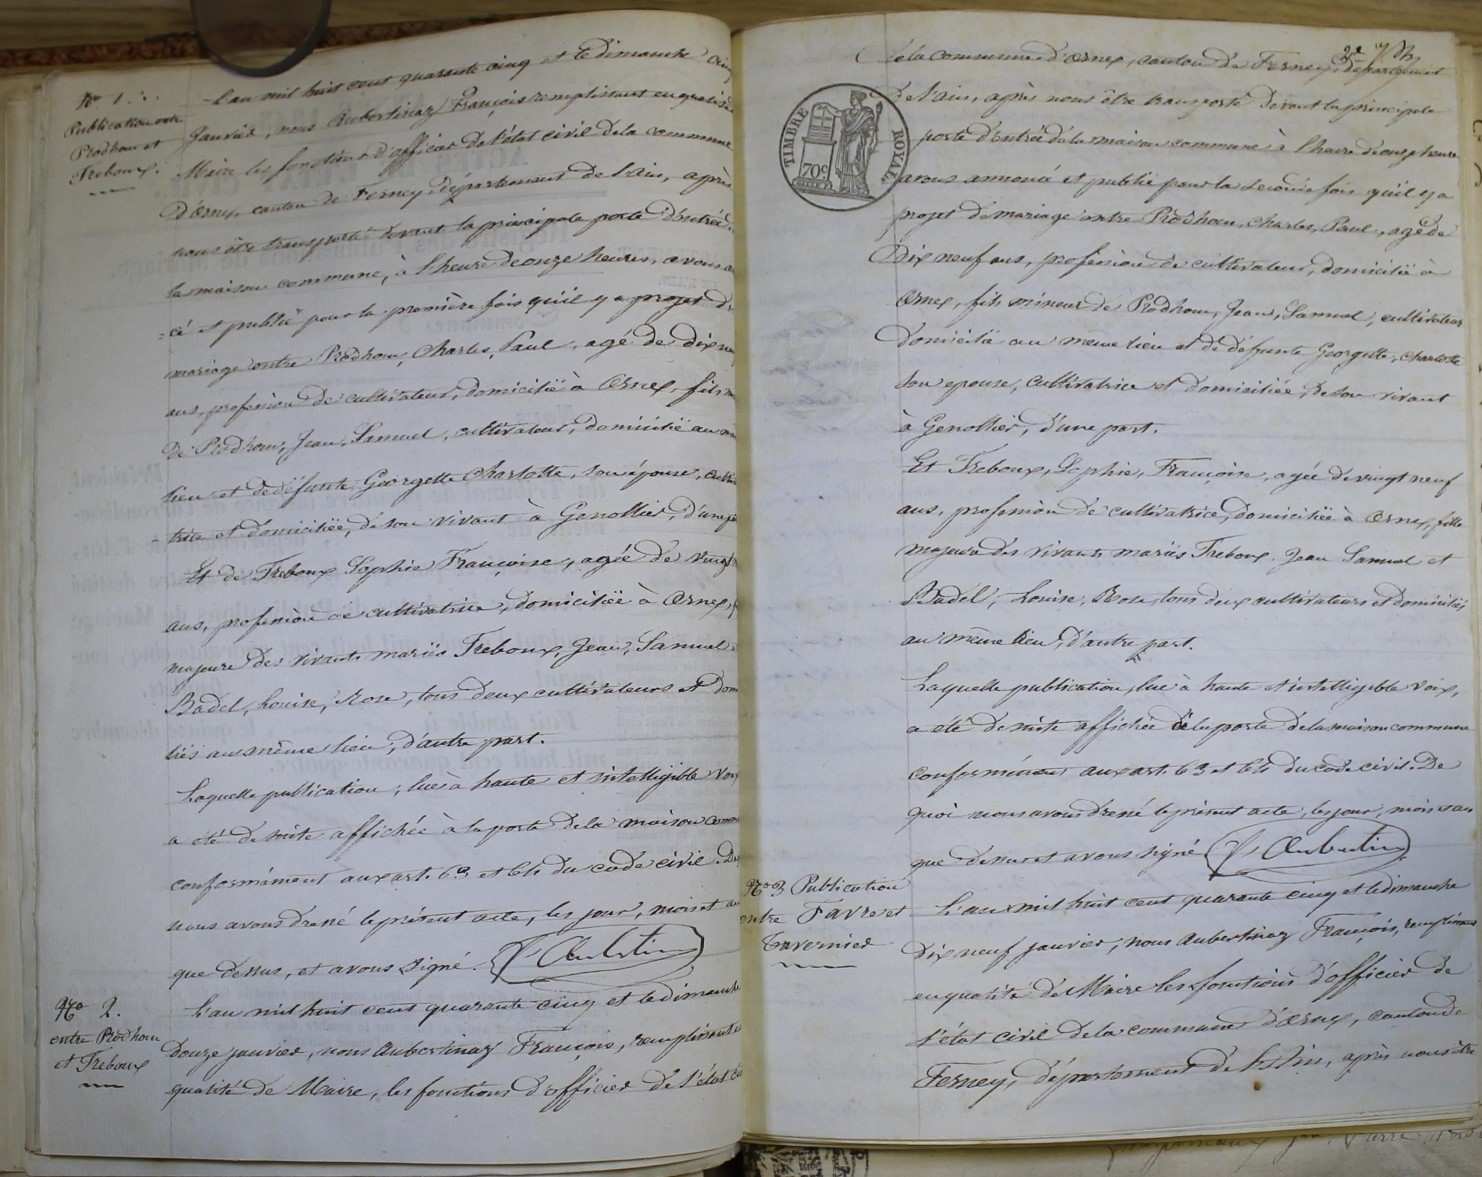 N° 1.
Publication entre
Prodhom et
Treboux.
L'an mil huit cent quarante cinq et le dimanche cinq
janvier, nous Aubertinaz François remplissant en qualité de
Maire les fonctions d'officier de l'état civil de la commune
d'Ornex, canton de Ferney, département de l'Ain, après
nous être transporté devant la principale porte d'entrée
la maison commune, à l'heure de onze heures, avons
-cé et publié pour la première fois qu'il y a projet de
mariage entre Prodhom, Charles, Paul, agé de dix
ans, profession de cultivateur, domicilié à Ornex, fils
de Prodhom, Jean, Samuel, cultivateur, domicilié au
lieu et de défunte Georgette Charlotte, son épouse,
-trice et domiciliée, de son vivant à Genollier, d'une
Et de Treboux Sophie Françoise, agée de vingt
ans, profession de cultivatrice, domiciliée à Ornex,
majeure des vivants mariés Treboux, Jean, Samuel
Badel, Louise, Rose, tous deux cultivateurs et domi
liés au même lieu, d'autre part.
Laquelle publication, lue à haute et intelligible voix
a été de suite affichée à la porte de la maison comm
conformément aux art. 63 et 64 du code civil. De
nous avons dressé le présent acte, les jour, mois et an
que dessus, et avons signé.
N° 2.
entre Prodhom
et Treboux
L'an mil huit cent quarante cinq et le dimanche
douze janvier, nous Aubertinaz François, remplissant
qualité de Maire, les fonctions d'officier de l'état
de la commune d'Ornex, canton de Ferney, département
TIMBRE ROYAL
70c
de l'Ain, après nous être transporté devant la principale
porte d'entrée de la maison commune à l'heure d'onze heures
avons annoncé et publié pour la seconde fois qu'il y a
projet de mariage entre Prodhom, Charles, Paul, agé de
Dix neuf ans, profession de cultivateur, domicilié à
Ornex, fils mineur de Prodhom, Jean, Samuel, cultivateur
domicilié au meme lieu et de défunte Georgette, Charlotte
son epouse, cultivatrice et domiciliée, de son vivant
à Genollier, d'une part.
Et Treboux, Sophie, Françoise, agée de vingt neuf
ans, profession de cultivatrice, domiciliée à Ornex, fille
majeure des vivants mariés Treboux Jean Samuel et
Badel, Louise, Rose, tous deux cultivateurs et domiciliés
au même lieu, d'autre part.
Laquelle publication, lue à haute et intelligible voix,
a été de suite affichée à la porte de la maison commune
conformément aux art. 63 et 64 du code civil. De
quoi nous avons dressé le présent acte, les jour, mois et an
que dessus et avons signé
N° 3 Publication
entre Favre et
Tavernier
L'an mil huit cent quarante cinq et le dimanche
Dix neuf janvier, nous Aubertinaz François, remplissant
en qualité de Maire les fonctions d'officier de
l'état civil de la commune d'Ornex, canton de
Ferney, département de l'Ain, après nous être